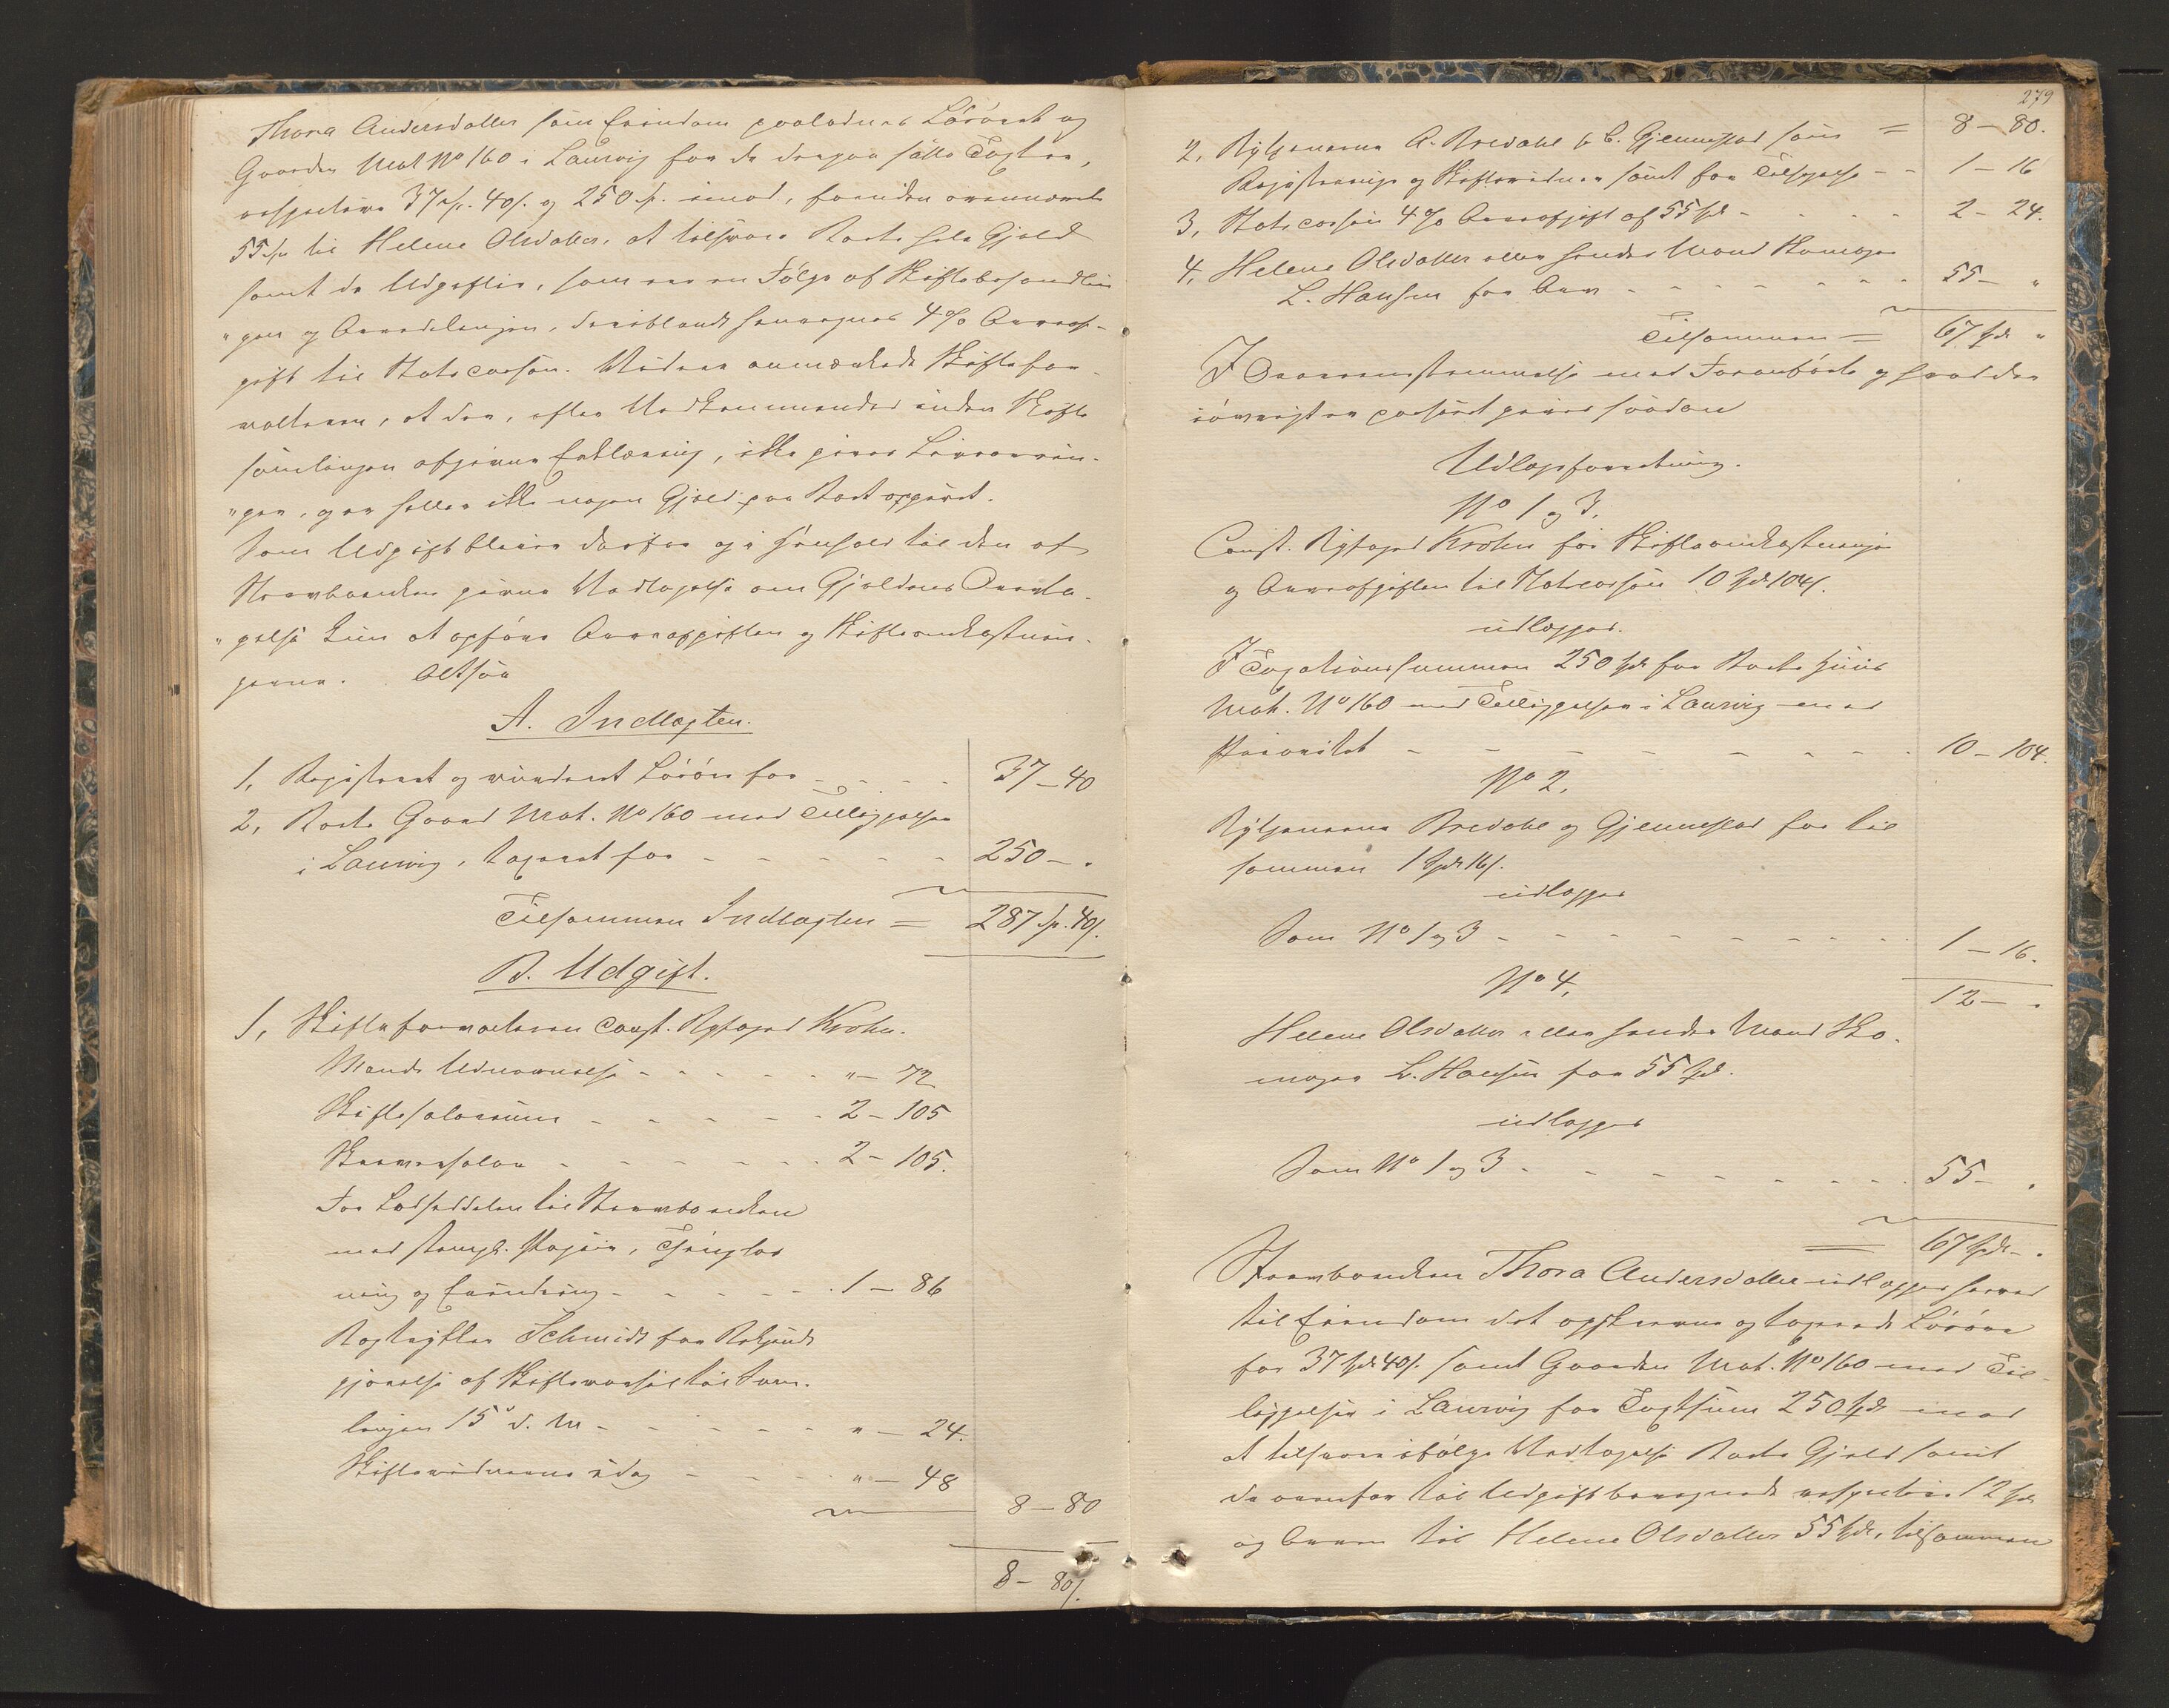 Thora Andersdatter som Eiendom paalodnes Løsøret og
Gaarden Mat No 160 i Laurvig for de derpaa satte Taxter,
respective 37 sp. 40 s. og 250 sp. imod, foruden ovennævnte
55 sp til Helene Olsdatter, at tilsvare Boets hele Gjæld
samt de Udgifter, som ere en Følge af Skiftebehandlin
"gen og Arvedelingen, deriblandt henregnes 4% Arveaf-
gift til Statscassen. Videre anmærkede Skiftefor-
valteren, at der, efter Vedkommendes inden Skifte
samlingen afgivne Erklæring, ikke gives
"gen, og er heller ikke nogen Gjæld paa Boet opgivet.
Som Udgift bliver derfor og i Henhold til den af
Stervboenken givne Vedtagelse om Gjældens Overta-
"gelse kun at opføre Arveafgiften og Skifteomkostnin-
gerne. Altsaa
A. Indtægten.
1, Registreret og vurderet Løsøre for - - - - 37 - 40
2, Boets Gaard Mat. No 160 med Tilliggelser
i Laurvig, taxeret for - - - - - 250 - "
Tilsammen Indtægten = 287 sp. 40 s.
B. Udgift.
1, Skifteforvalteren const. Byfoged Krohn.
Mænds Udnævnelse - - - - - " - 72
Skiftesalarium - - - - - 2 - 105
Skriversalær - - - - - - 2 - 105.
For Lodseddelen til Stervboenken
med stempl. Papiir, Thinglæs
ning og Erindring - - - - - 1 - 86
Bogtrykker Schmidt for Bekjendt
gjørelse af Skiftevarsel til Sam-
lingen 15de d. M - - - - - " - 24.
Skiftevidnerne idag - - - " - 48
8 - 80
8 - 80 s.
279
8 - 80.
2, Rygjenerne A. Bredahl & C. Gjennestad som =
Registrerings og Skiftevidner samt for Tilsigelse - - 1 - 16
3, Statscassen 4% Arveafgift af 55 Spd - - - - - 2 - 24.
4, Helene Olsdatter eller hendes Mand Skomager
L. Hansen for Arv - - - - - - - 55 - "
Tilsammen = 67 Spd "
I Overensstemmelse med Foranførte og hvad der
iøvrigt er passeret gives saadan
Udlægsforretning.
No 1 og 3.
Const. Byfoged Krohn for Skifteomkostninger
og Arveafgiften til Statscassen 10 Spd 104 s.
udlægges.
I Taxationssummen 250 Spd for Boets Huus
Mat. No 160 med Tilliggelser i Laurvig med
Prioritet - - - - - - - - 10 - 104.
No 2,
Bredahl og Gjennestad for til
sammen 1 Spd 16 s.
udlægges
Som No 1 og 3 - - - - - - - - 1 - 16.
No 4, 12 - "
Helene Olsdatter eller hendes Mand Sko-
mager L. Hansen for 55 Spd.
udlægges
Som No 1 og 3 - - - - - - - - 55 - "
= 67 Spd - "
Stervboenken Thora Andersdatter udlægges herved
til Eiendom det opskrevne og taxerede Løsøre
for 37 Spd 40 s. samt Gaarden Mat. No 160 med Til-
liggelser i Laurvig for Taxtsum 250 Spd imod
at tilsvare ifølge Vedtagelse Boets Gjæld samt
de ovenfor til Udgift beregnede respective 12 Spd
og Arven til Helene Olsdatter 55 Spd, tilsammen